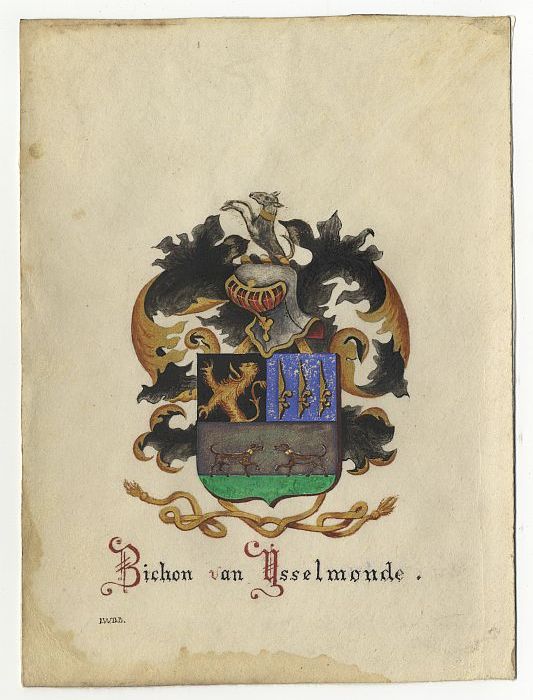 Bichon van Ysselmonde.
I.W.D.B.